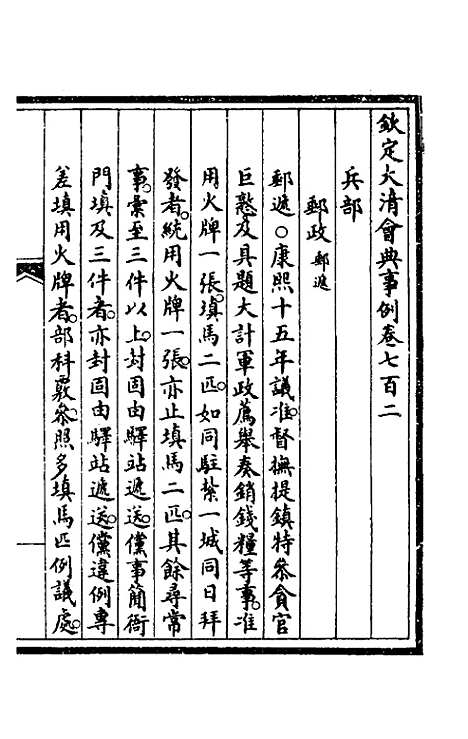 欽定大清會典事例卷七百二
兵部
郵政郵遞
郵遞○康熙十五年議准督撫提鎮特參貪官
巨憝及具題大計軍政薦舉奏銷錢糧等事准
用火牌一張填馬二匹如同駐紮一城同日拜
發者統用火牌一張亦止填馬二匹其餘尋常
事彙至三件以上封固由驛站遞送儻事簡衙
門填及三件者亦封固由驛站遞送儻違例專
差填用火牌者部科覈參照多填馬匹例議處